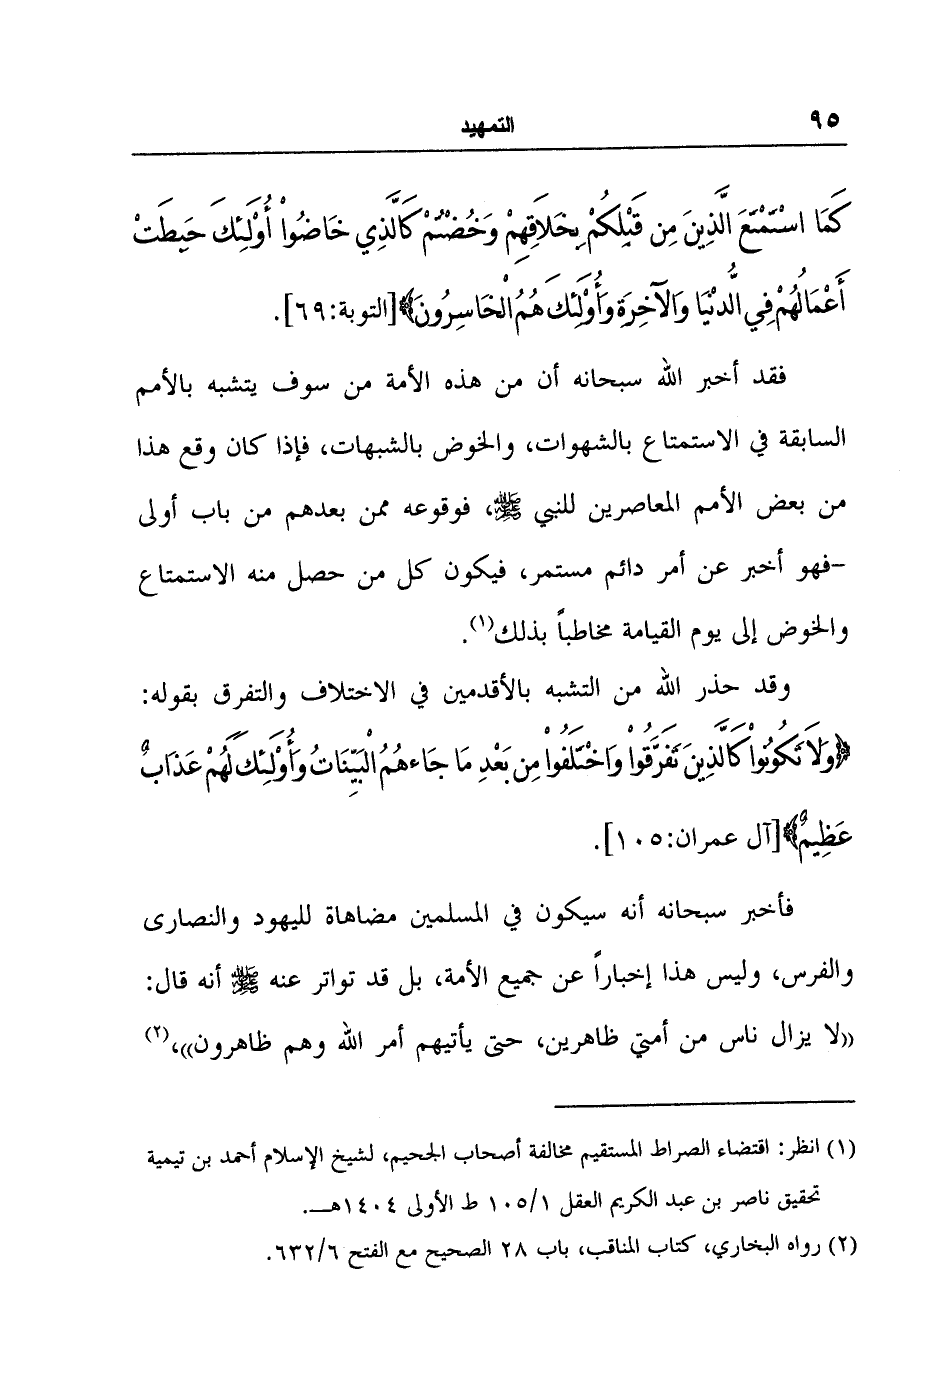 ٩٥
التمهيد
كَمَا اسْتَمْتَعَ الَّذِينَ مِن قَبْلِكُمْ بِخَلَاقِهِمْ وَخُضْتُمْ كَالَّذِي خَاضُواْ أُوْلَئِكَ حَبِطَتْ
أَعْمَالُهُمْ فِي الُّدنْيَا وَالآخِرَةِ وَأُوْلَئِكَ هُمُ الْخَاسِرُونَ﴾[التوبة:٦٩].
فقد أخبر الله سبحانه أن من هذه الأمة من سوف يتشبه بالأمم
السابقة في الاستمتاع بالشهوات، والخوض بالشبهات، فإذا كان وقع هذا
من بعض الأمم المعاصرين للنبي ﷺ، فوقوعه ممن بعدهم من باب أولى
–فهو أخبر عن أمر دائم مستمر، فيكون كل من حصل منه الاستمتاع
والخوض إلى يوم القيامة مخاطباً بذلك(١).
وقد حذر الله من التشبه بالأقدمين في الاختلاف والتفرق بقوله:
﴿وَلاَ تَكُونُواْ كَالَّذِينَ تَفَرَّقُواْ وَاخْتَلَفُواْ مِن بَعْدِ مَا جَاءهُمُ الْبَيِّنَاتُ وَأُوْلَئِكَ لَهُمْ عَذَابٌ
عَظِيمٌ﴾[آل عمران:١٠٥].
فأخبر سبحانه أنه سيكون في المسلمين مضاهاة لليهود والنصارى
والفرس، وليس هذا إخباراً عن جميع الأمة، بل قد تواتر عنه ﷺ أنه قال:
((لا يزال ناس من أمتي ظاهرين، حتى يأتيهم أمر الله وهم ظاهرون))،(٢)
(١) انظر: اقتضاء الصراط المستقيم مخالفة أصحاب الجحيم، لشيخ الإسلام أحمد بن تيمية
تحقيق ناصر بن عبد الكريم العقل ١٠٥/١ ط الأولى ١٤٠٤هـ.
(٢) رواه البخاري، كتاب المناقب، باب ٢٨ الصحيح مع الفتح ٦٣٢/٦.